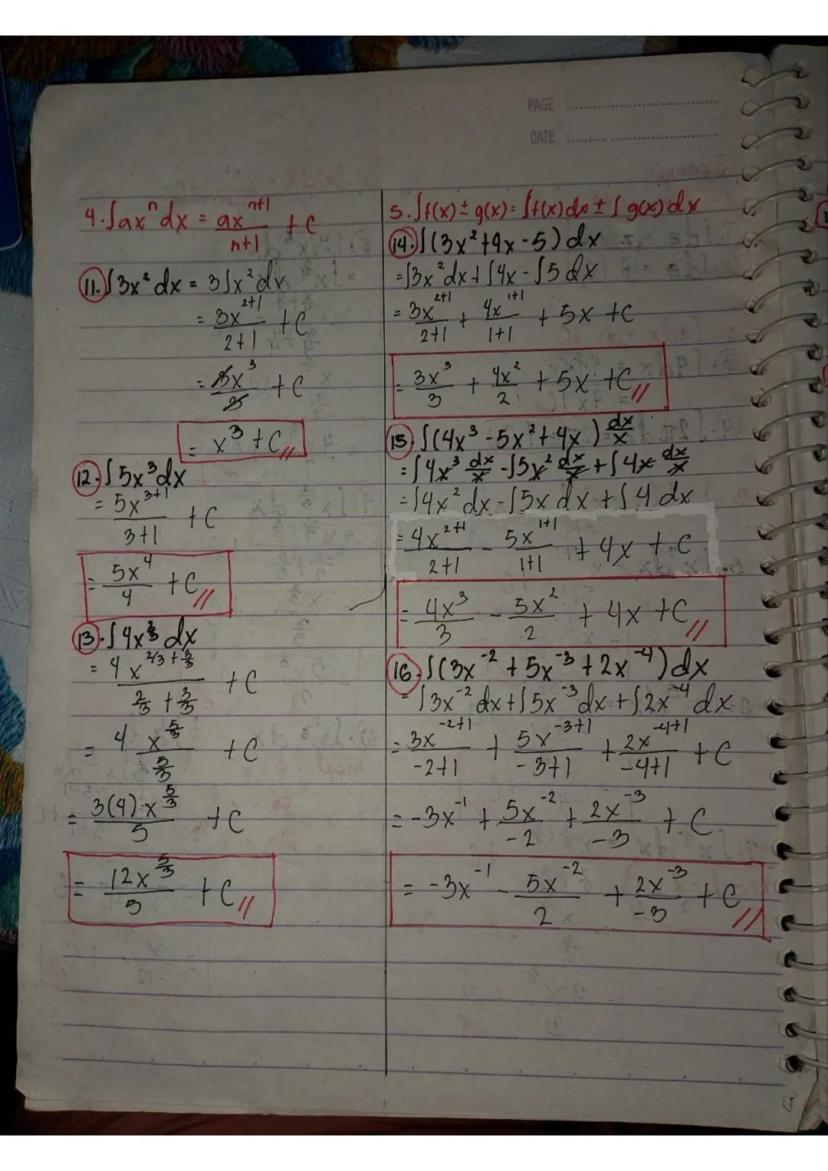 PAGE :
DATE :
4. ∫ax^n dx = ax^(n+1)/(n+1) + C
11. ∫3x² dx = 3∫x² dx
= 3x^(2+1)/(2+1) + C
= 3x³/3 + C
= x³ + C //
12. ∫5x³ dx
= 5x^(3+1)/(3+1) + C
= 5x⁴/4 + C //
13. ∫4x^(2/3) dx
= 4x^(2/3 + 3/3)/(2/3 + 3/3) + C
= 4 x^(5/3)/(5/3) + C
= 3(4)·x^(5/3)/5 + C
= 12x^(5/3)/5 + C //
5. ∫f(x) ± g(x) = ∫f(x) dx ± ∫g(x) dx
14. ∫(3x² + 4x - 5) dx
= ∫3x² dx + ∫4x - ∫5 dx
= 3x^(2+1)/(2+1) + 4x^(1+1)/(1+1) + 5x + C
= 3x³/3 + 4x²/2 + 5x + C //
15. ∫(4x³ - 5x² + 4x) dx/x
= ∫4x³ dx/x - ∫5x² dx/x + ∫4x dx/x
= ∫4x² dx - ∫5x dx + ∫4 dx
= 4x^(2+1)/(2+1) - 5x^(1+1)/(1+1) + 4x + C
= 4x³/3 - 5x²/2 + 4x + C //
16. ∫(3x^-2 + 5x^-3 + 2x^-4) dx
= ∫3x^-2 dx + ∫5x^-3 dx + ∫2x^-4 dx
= 3x^(-2+1)/(-2+1) + 5x^(-3+1)/(-3+1) + 2x^(-4+1)/(-4+1) + C
= -3x^-1 + 5x^-2/-2 + 2x^-3/-3 + C
= -3x^-1 - 5x^-2/2 + 2x^-3/-3 + C //